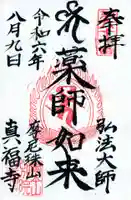 奉拝
弘法大師
薬師如来
摩尼珠山
真福寺
令和六年
八月九日